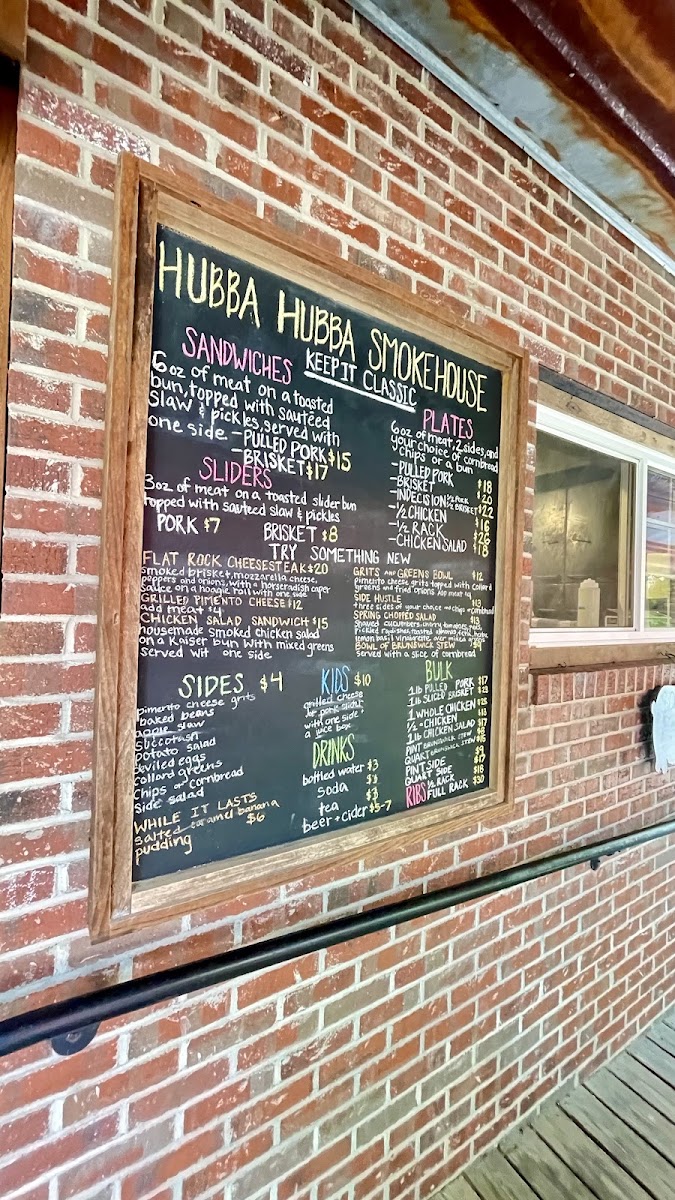 HUBBA HUBBA SMOKEHOUSE
KEEP IT CLASSIC
SANDWICHES
6oz of meat on a toasted
bun, topped with sautéed
slaw & pickles, served with
one side - PULLED PORK $15
- BRISKET $17
SLIDERS
3oz of meat on a toasted slider bun
topped with sauteed slaw & pickles
PORK $7 BRISKET $8
PLATES
6oz of meat, 2 sides, and
your choice of cornbread
chips or a bun
- PULLED PORK $18
- BRISKET $20
- INDECISION 1/2 PORK 1/2 BRISKET $22
- 1/2 CHICKEN $16
- 1/2 RACK $26
- CHICKEN SALAD $18
TRY SOMETHING NEW
FLAT ROCK CHEESESTEAK $20
smoked brisket, mozzarella cheese,
peppers and onions, with a horseradish caper
sauce on a hoagie roll with one side
GRILLED PIMENTO CHEESE $12
add meat $4
CHICKEN SALAD SANDWICH $15
housemade smoked chicken salad
on a Kaiser bun with mixed greens
served wit one side
GRITS AND GREENS BOWL $12
pimento cheese grits topped with collard
greens and fried onions Add meat $4
SIDE HUSTLE $13
three sides of your choice and chips or cornbread
SPRING CHOPPED SALAD $13
Shaved cucumbers, cherry tomatoes,
Pickled radishes, toasted almond, feta,
lemon basil vinaigrette over mixed greens
BOWL OF BRUNSWICK STEW $9
served with a slice of cornbread
SIDES $4
pimento cheese grits
baked beans
apple slaw
succotash
potato salad
deviled eggs
collard greens
chips or cornbread
side salad
WHILE IT LASTS
salted caramel banana
pudding $6
KIDS $10
grilled cheese
or pork slider
with one side
a juice box
DRINKS
bottled water $3
soda $3
tea $3
beer + cider $5-7
BULK
1lb PULLED PORK $17
1lb SLICED BRISKET $23
1 WHOLE CHICKEN $25
1/2 CHICKEN $13
1lb CHICKEN SALAD $17
PINT BRUNSWICK STEW $8
QUART BRUNSWICK STEW $15
PINT SIDE $9
QUART SIDE $17
RIBS 1/2 RACK $18
FULL RACK $30